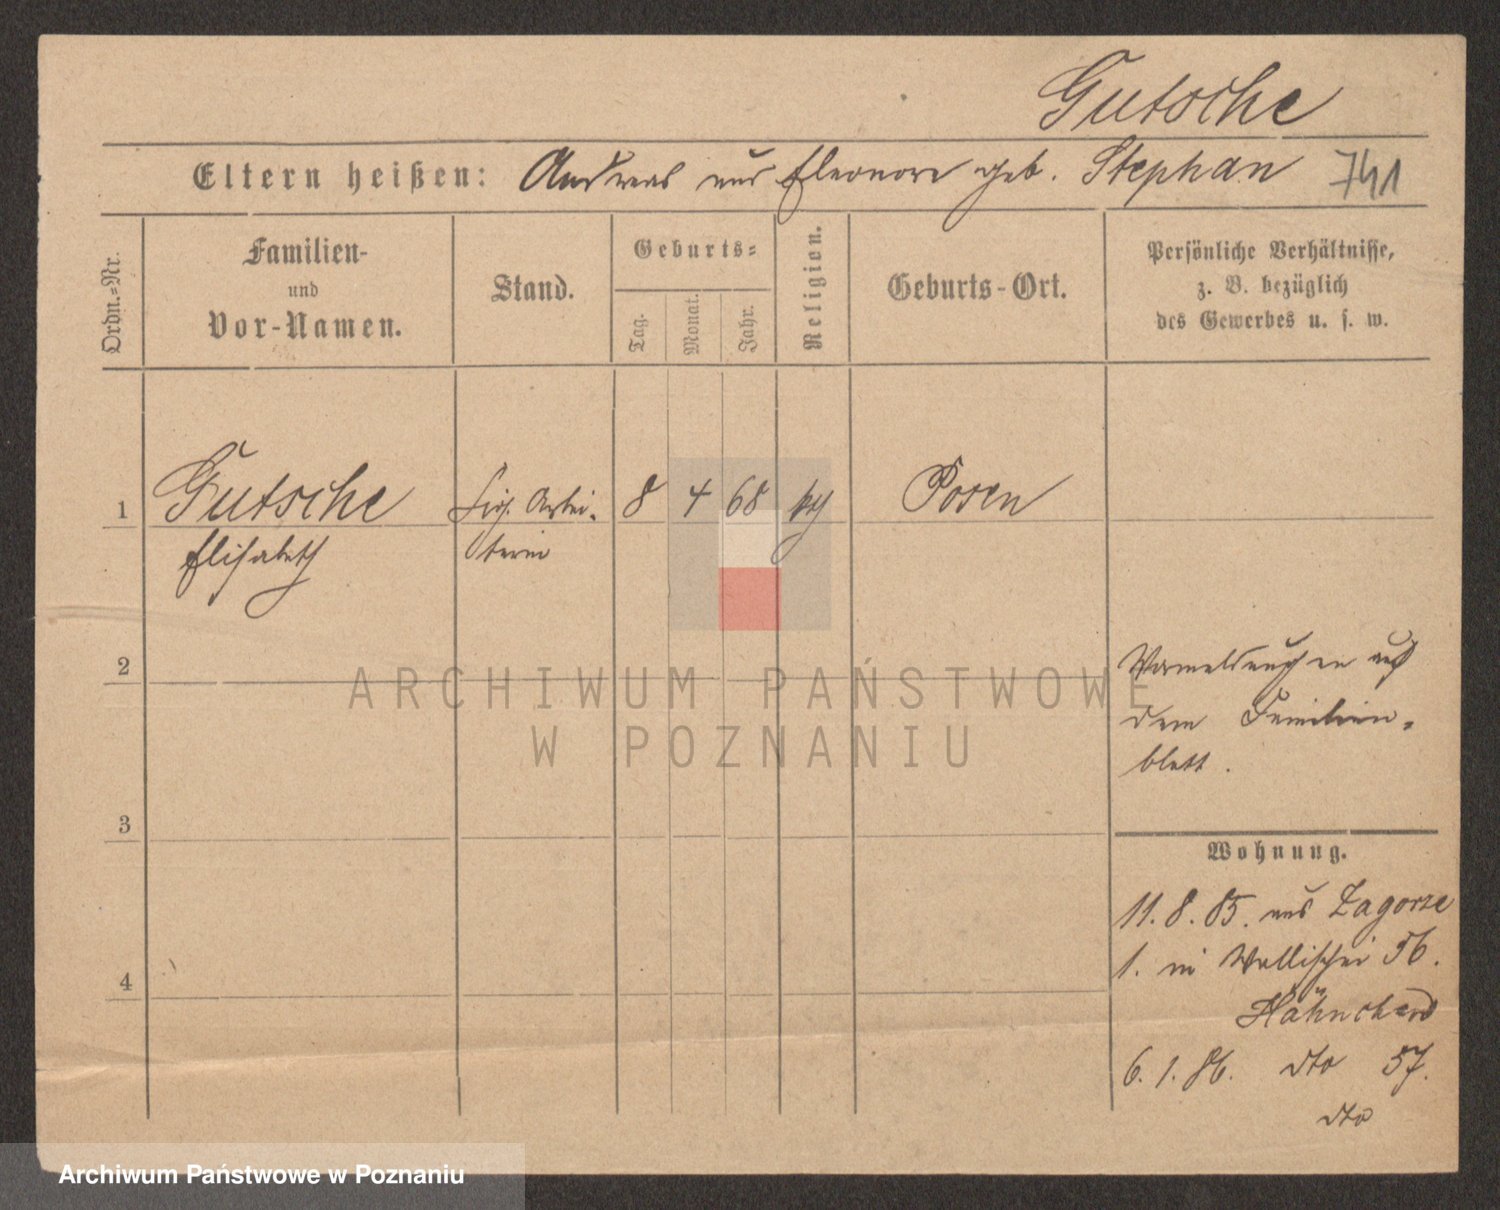 Gutsche
Eltern heißen: Andreas und Eleonore geb. Stephan 741
Ordn.-Nr.
Familien-
und
Vor-Namen.
Stand.
Geburts-
Tag.
Monat.
Jahr.
Religion.
Geburts-Ort.
Persönliche Verhältnisse,
z. B. bezüglich
des Gewerbes u. s. w.
1 Gutsche Cig. Arbei- 8 4 68 Posen
Elisabeth terin
2
Vormeldungen auf
dem Familien-
blatt.
3
Wohnung.
11. 8. 85. aus Zagorze
1. in Wallischei 56.
4
6. 1. 86. dto 57.
dto
ARCHIWUM PAŃSTWOWE
W POZNANIU
Archiwum Państwowe w Poznaniu